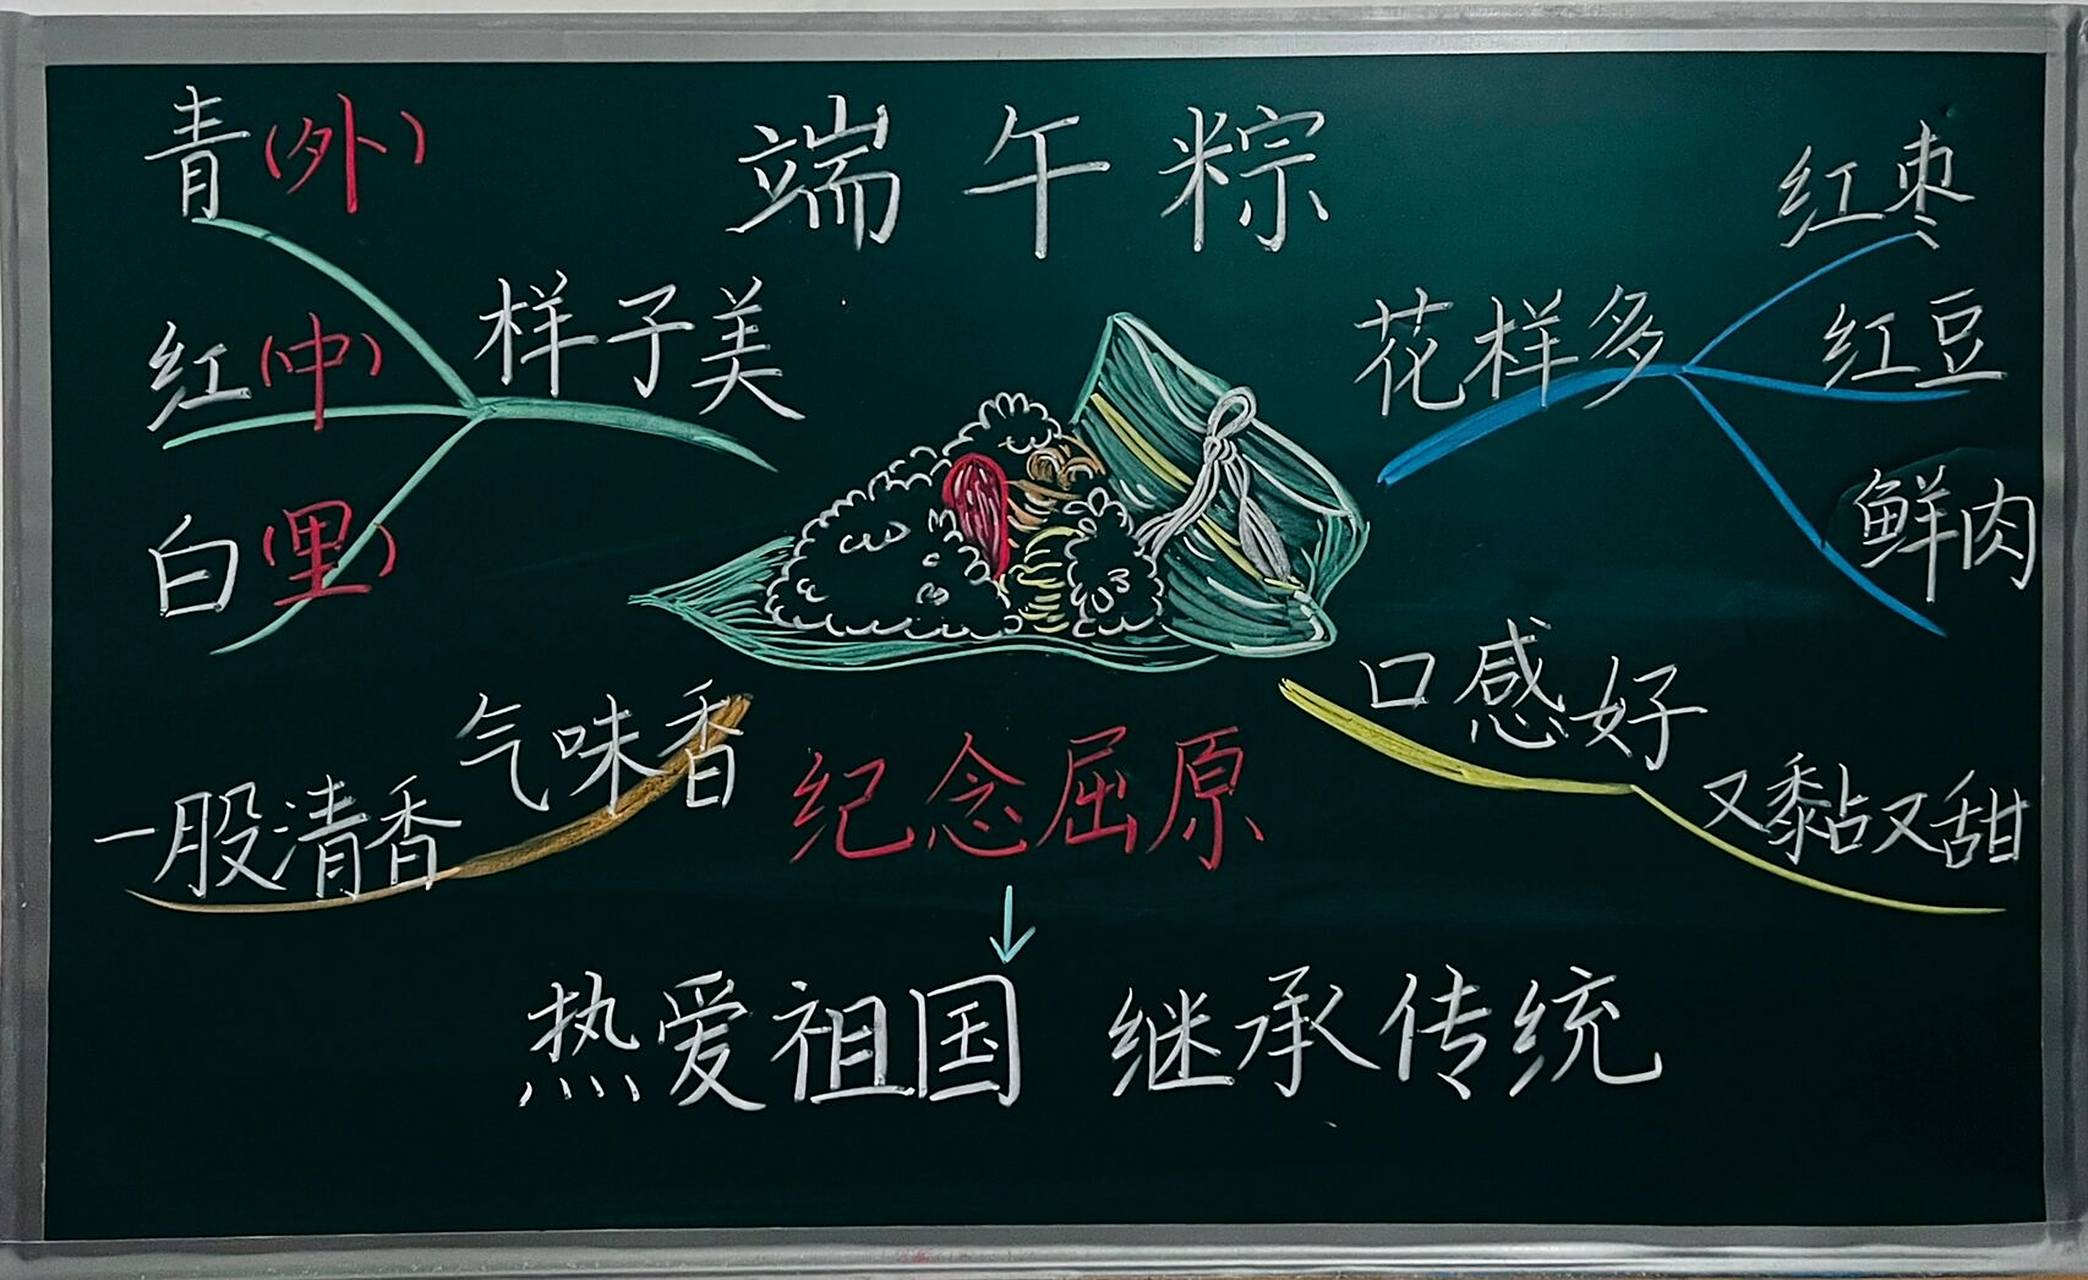 端午粽
青(外)
红(中)
白(里)
样子美
花样多
红枣
红豆
鲜肉
气味香
一股清香
口感好
又黏又甜
纪念屈原
↓
热爱祖国 继承传统